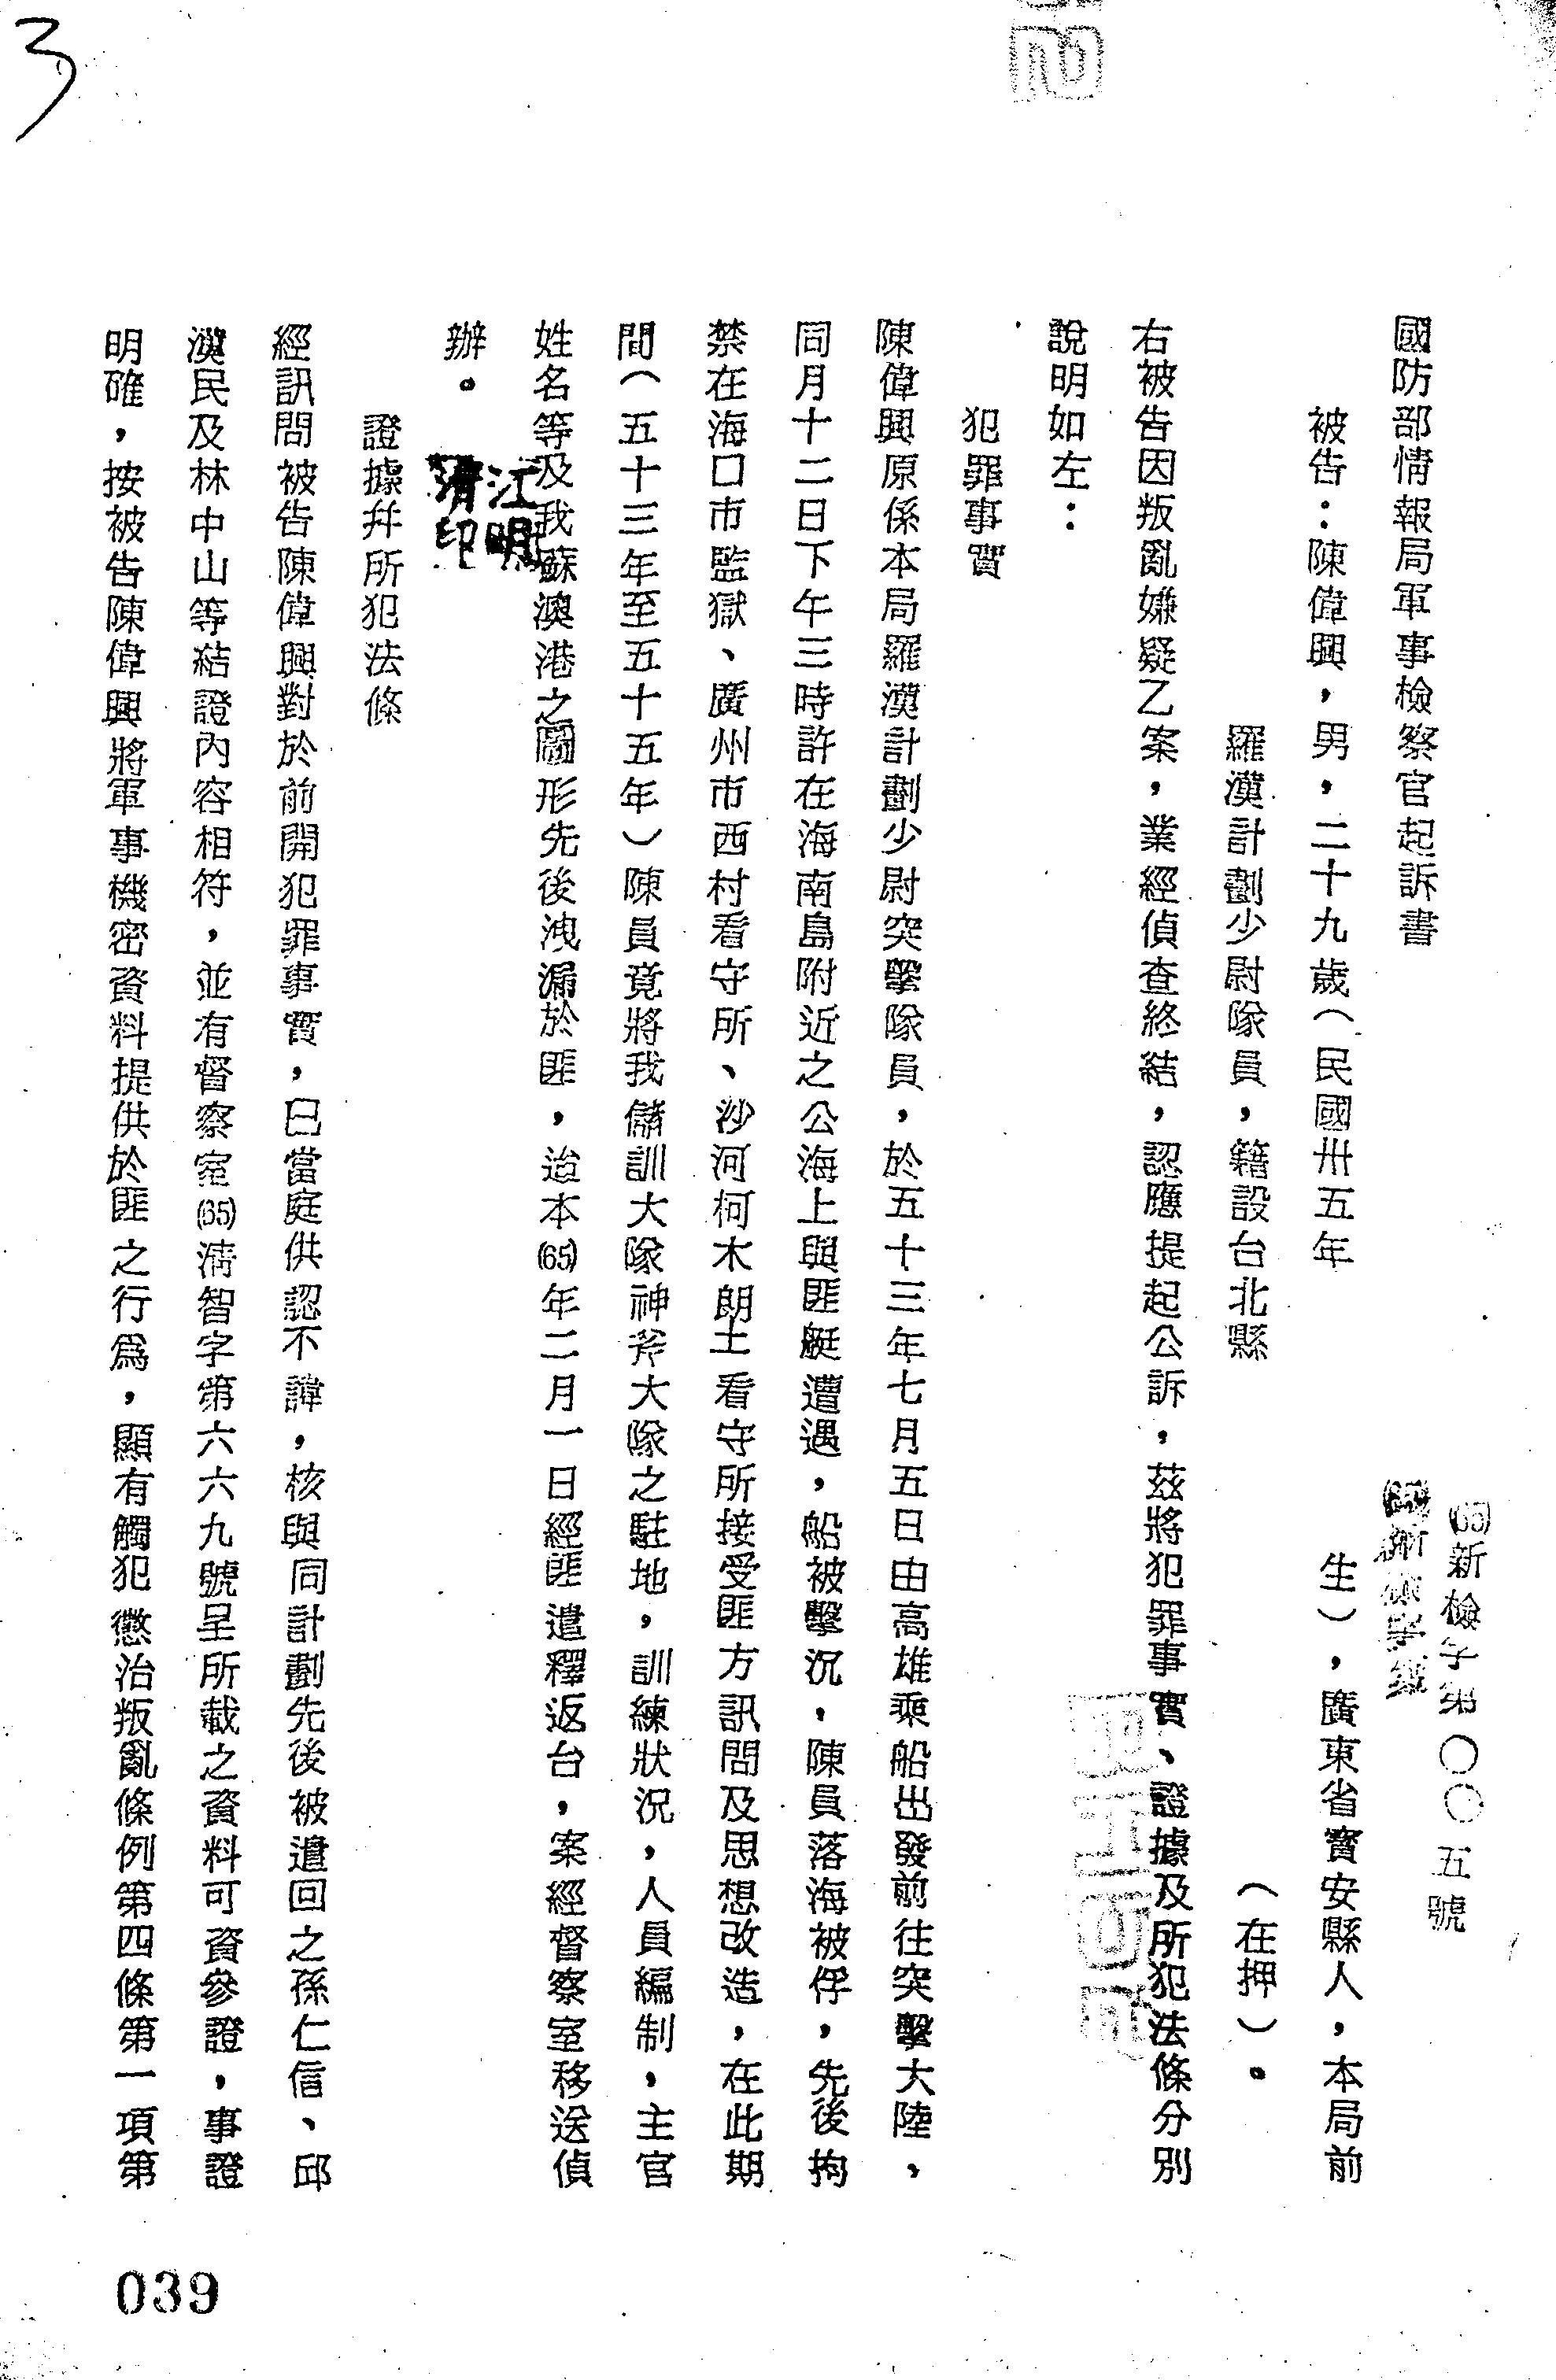 3
國防部情報局軍事檢察官起訴書
(65)新檢字第〇〇五號
被告：陳偉興，男，二十九歲（民國卅五年生），廣東省寶安縣人，本局前
羅漢計劃少尉隊員，籍設台北縣（在押）。
右被告因叛亂嫌疑乙案，業經偵查終結，認應提起公訴，茲將犯罪事實、證據及所犯法條分別
說明如左：
犯罪事實
陳偉興原係本局羅漢計劃少尉突擊隊員，於五十三年七月五日由高雄乘船出發前往突擊大陸，
同月十二日下午三時許在海南島附近之公海上與匪艇遭遇，船被擊沉，陳員落海被俘，先後拘
禁在海口市監獄、廣州市西村看守所、沙河柯木朗土看守所接受匪方訊問及思想改造，在此期
間（五十三年至五十五年）陳員竟將我儲訓大隊神斧大隊之駐地，訓練狀況，人員編制，主官
姓名等及我蘇澳港之圖形先後洩漏於匪，迨本(65)年二月一日經匪遣釋返台，案經督察室移送偵
辦。
江明清印
證據幷所犯法條
經訊問被告陳偉興對於前開犯罪事實，已當庭供認不諱，核與同計劃先後被遣回之孫仁信、邱
漢民及林中山等結證內容相符，並有督察室(65)清智字第六六九號呈所載之資料可資參證，事證
明確，按被告陳偉興將軍事機密資料提供於匪之行爲，顯有觸犯懲治叛亂條例第四條第一項第
039